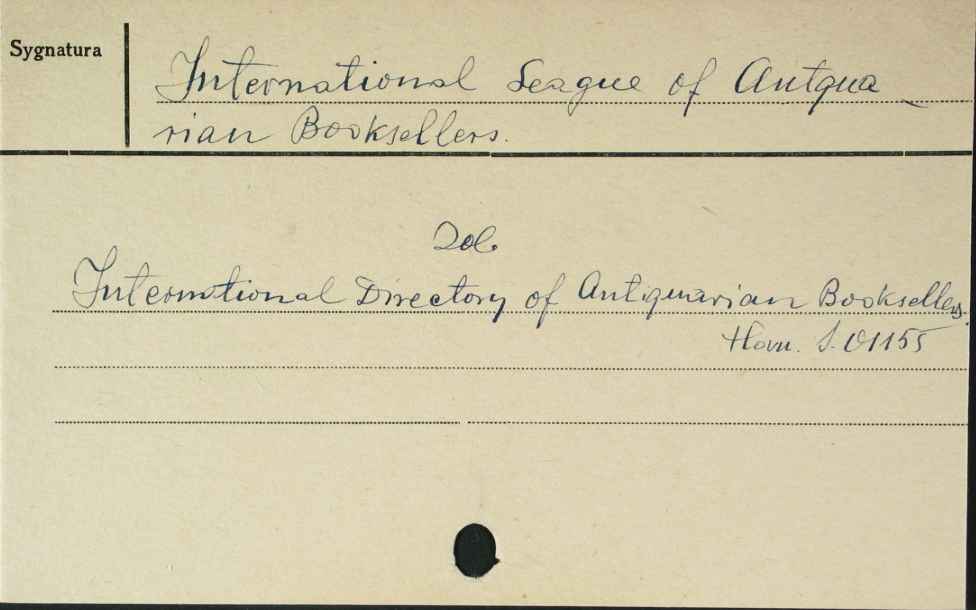 Sygnatura
International League of Antqua-
rian Booksellers.
Zob.
International Directory of Antiquarian Booksellers.
S. 01155